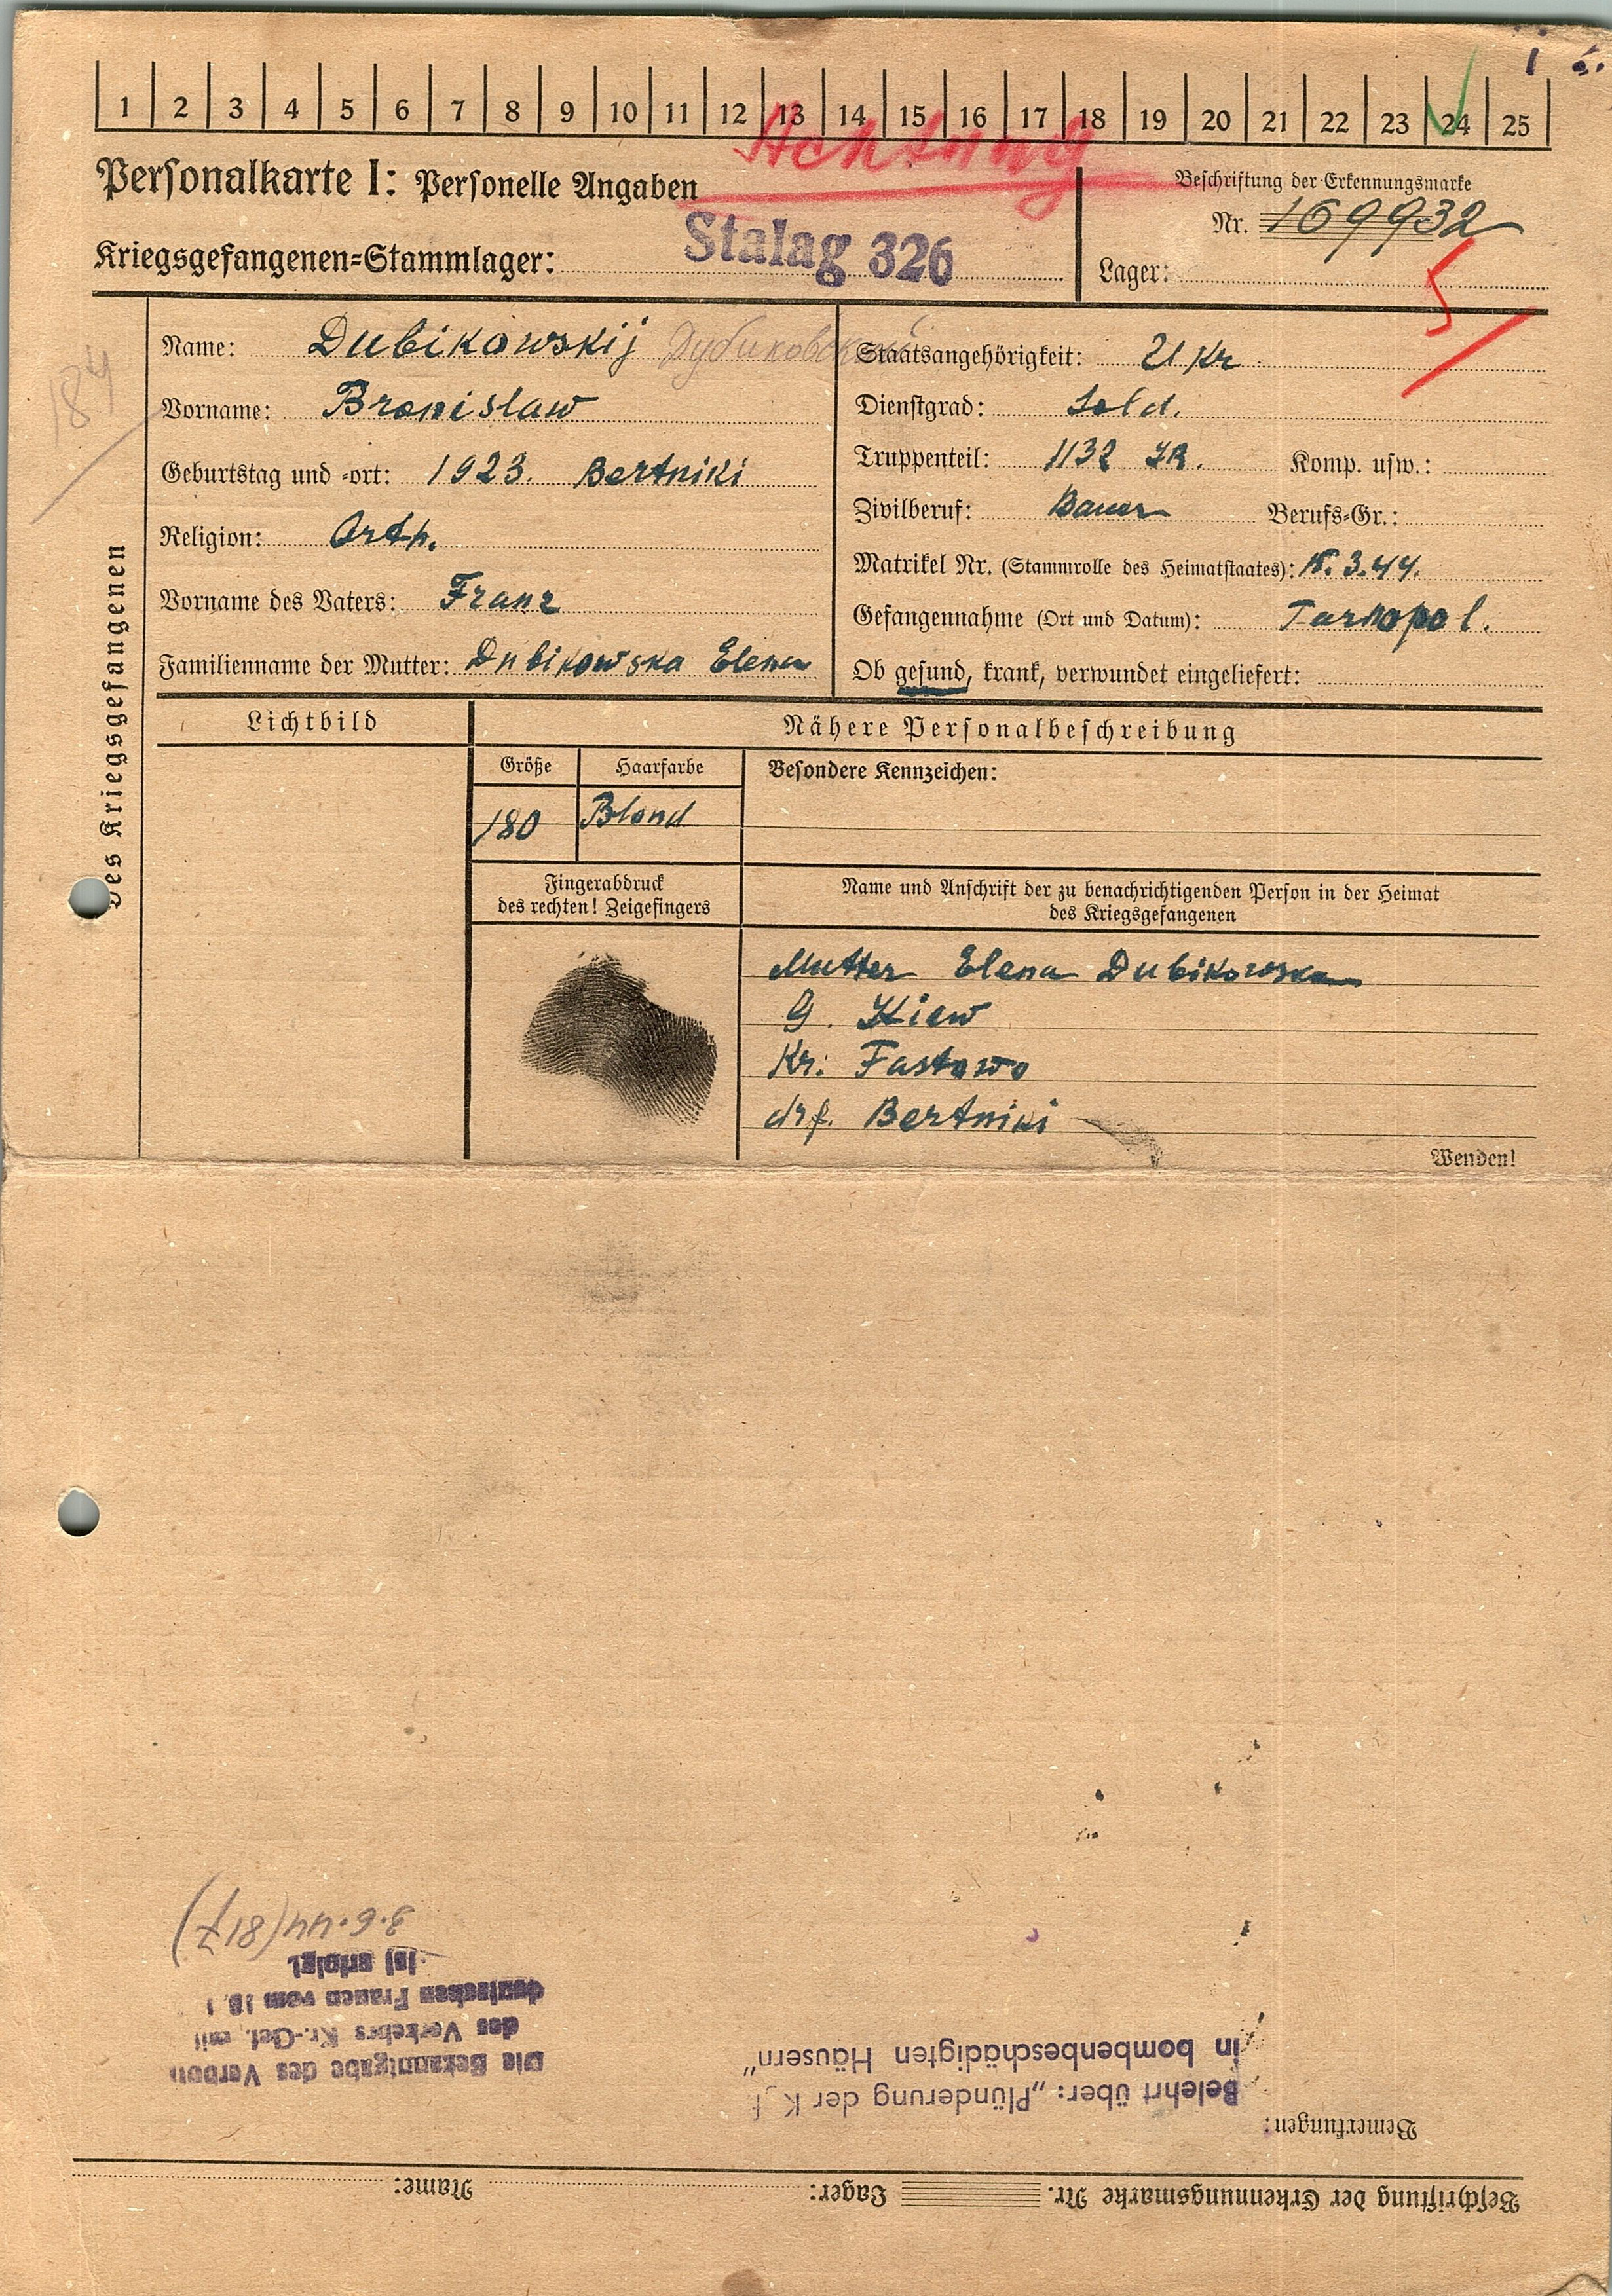 1 2 3 4 5 6 7 8 9 10 11 12 13 14 15 16 17 18 19 20 21 22 23 24 25
Achtung
Personalkarte I: Personelle Angaben
Beschriftung der Erkennungsmarke
Nr. 169932
Kriegsgefangenen=Stammlager: Stalag 326
Lager:
5
184
Des Kriegsgefangenen
Name: Dubikowskij Дубиковский
Vorname: Bronislaw
Geburtstag und =ort: 1923. Bertniki
Religion: Orth.
Vorname des Vaters: Franz
Familienname der Mutter: Dubikowska Elena
Staatsangehörigkeit: Ukr
Dienstgrad: Sold.
Truppenteil: 1132 IR. Komp. usw.:
Zivilberuf: Bauer Berufs=Gr.:
Matrikel Nr. (Stammrolle des Heimatstaates): 3.44.
Gefangennahme (Ort und Datum): Tarnopol.
Ob gesund, krank, verwundet eingeliefert:
Lichtbild
Nähere Personalbeschreibung
Größe Haarfarbe Besondere Kennzeichen:
180 Blond
Fingerabdruck
des rechten! Zeigefingers
Name und Anschrift der zu benachrichtigenden Person in der Heimat
des Kriegsgefangenen
Mutter Elena Dubikowska
G. Kiew
Kr: Fastowo
drf. Bertniki
Wenden!
Beschriftung der Erkennungsmarke Nr. Lager: Name:
Bemerkungen:
Belehrt über: „Plünderung der K
in bombenbeschädigten Häusern"
Die Bekanntgabe des Verbots
des Verkehrs Kr.-Gef. mit
deutschen Frauen vom 18.1
ist erfolgt.
3.6.44 (817)